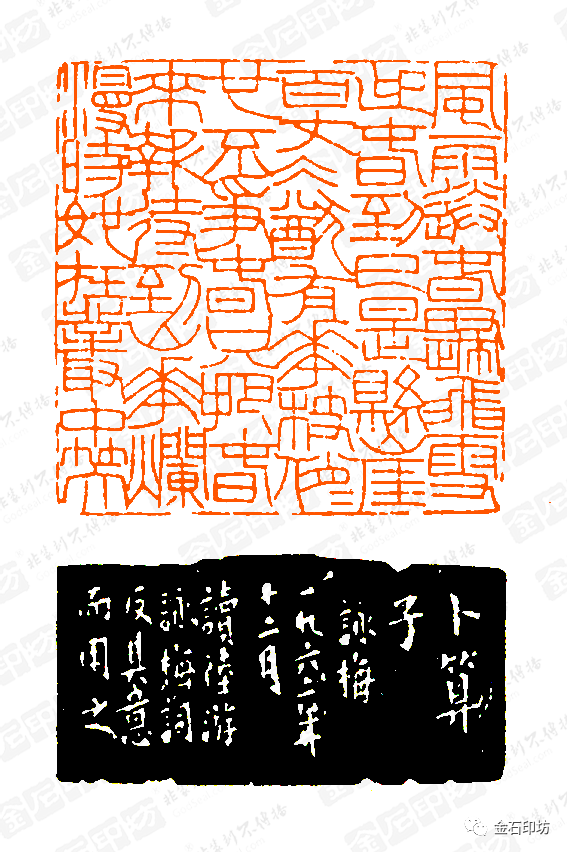 風雨送春歸飛雪
迎春到已是懸崖
百丈冰猶有花枝俏
也不爭春只把春
來報待到山花爛
漫時她在叢中笑
卜算
子
詠梅
一九六一年
十二月
讀陸游
詠梅詞
反其意
而用之
金石印坊